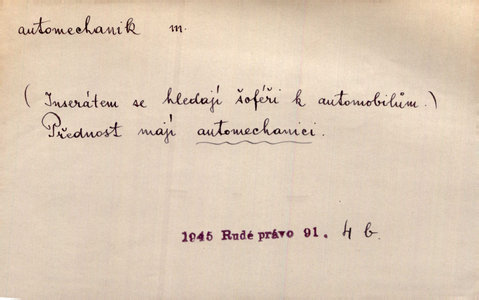 automechanik m.
(Inserátem se hledají šoféři k automobilům.)
Přednost mají automechanici.
1945 Rudé právo 91. 4 b.